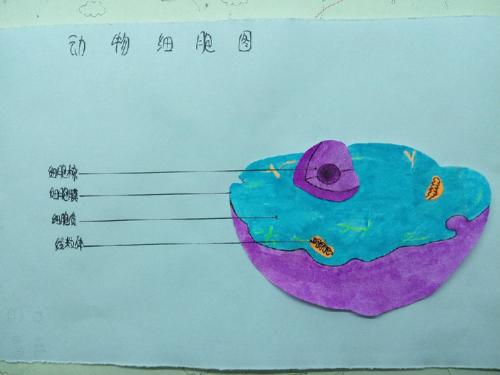 动物细胞图
细胞核
细胞膜
细胞质
线粒体